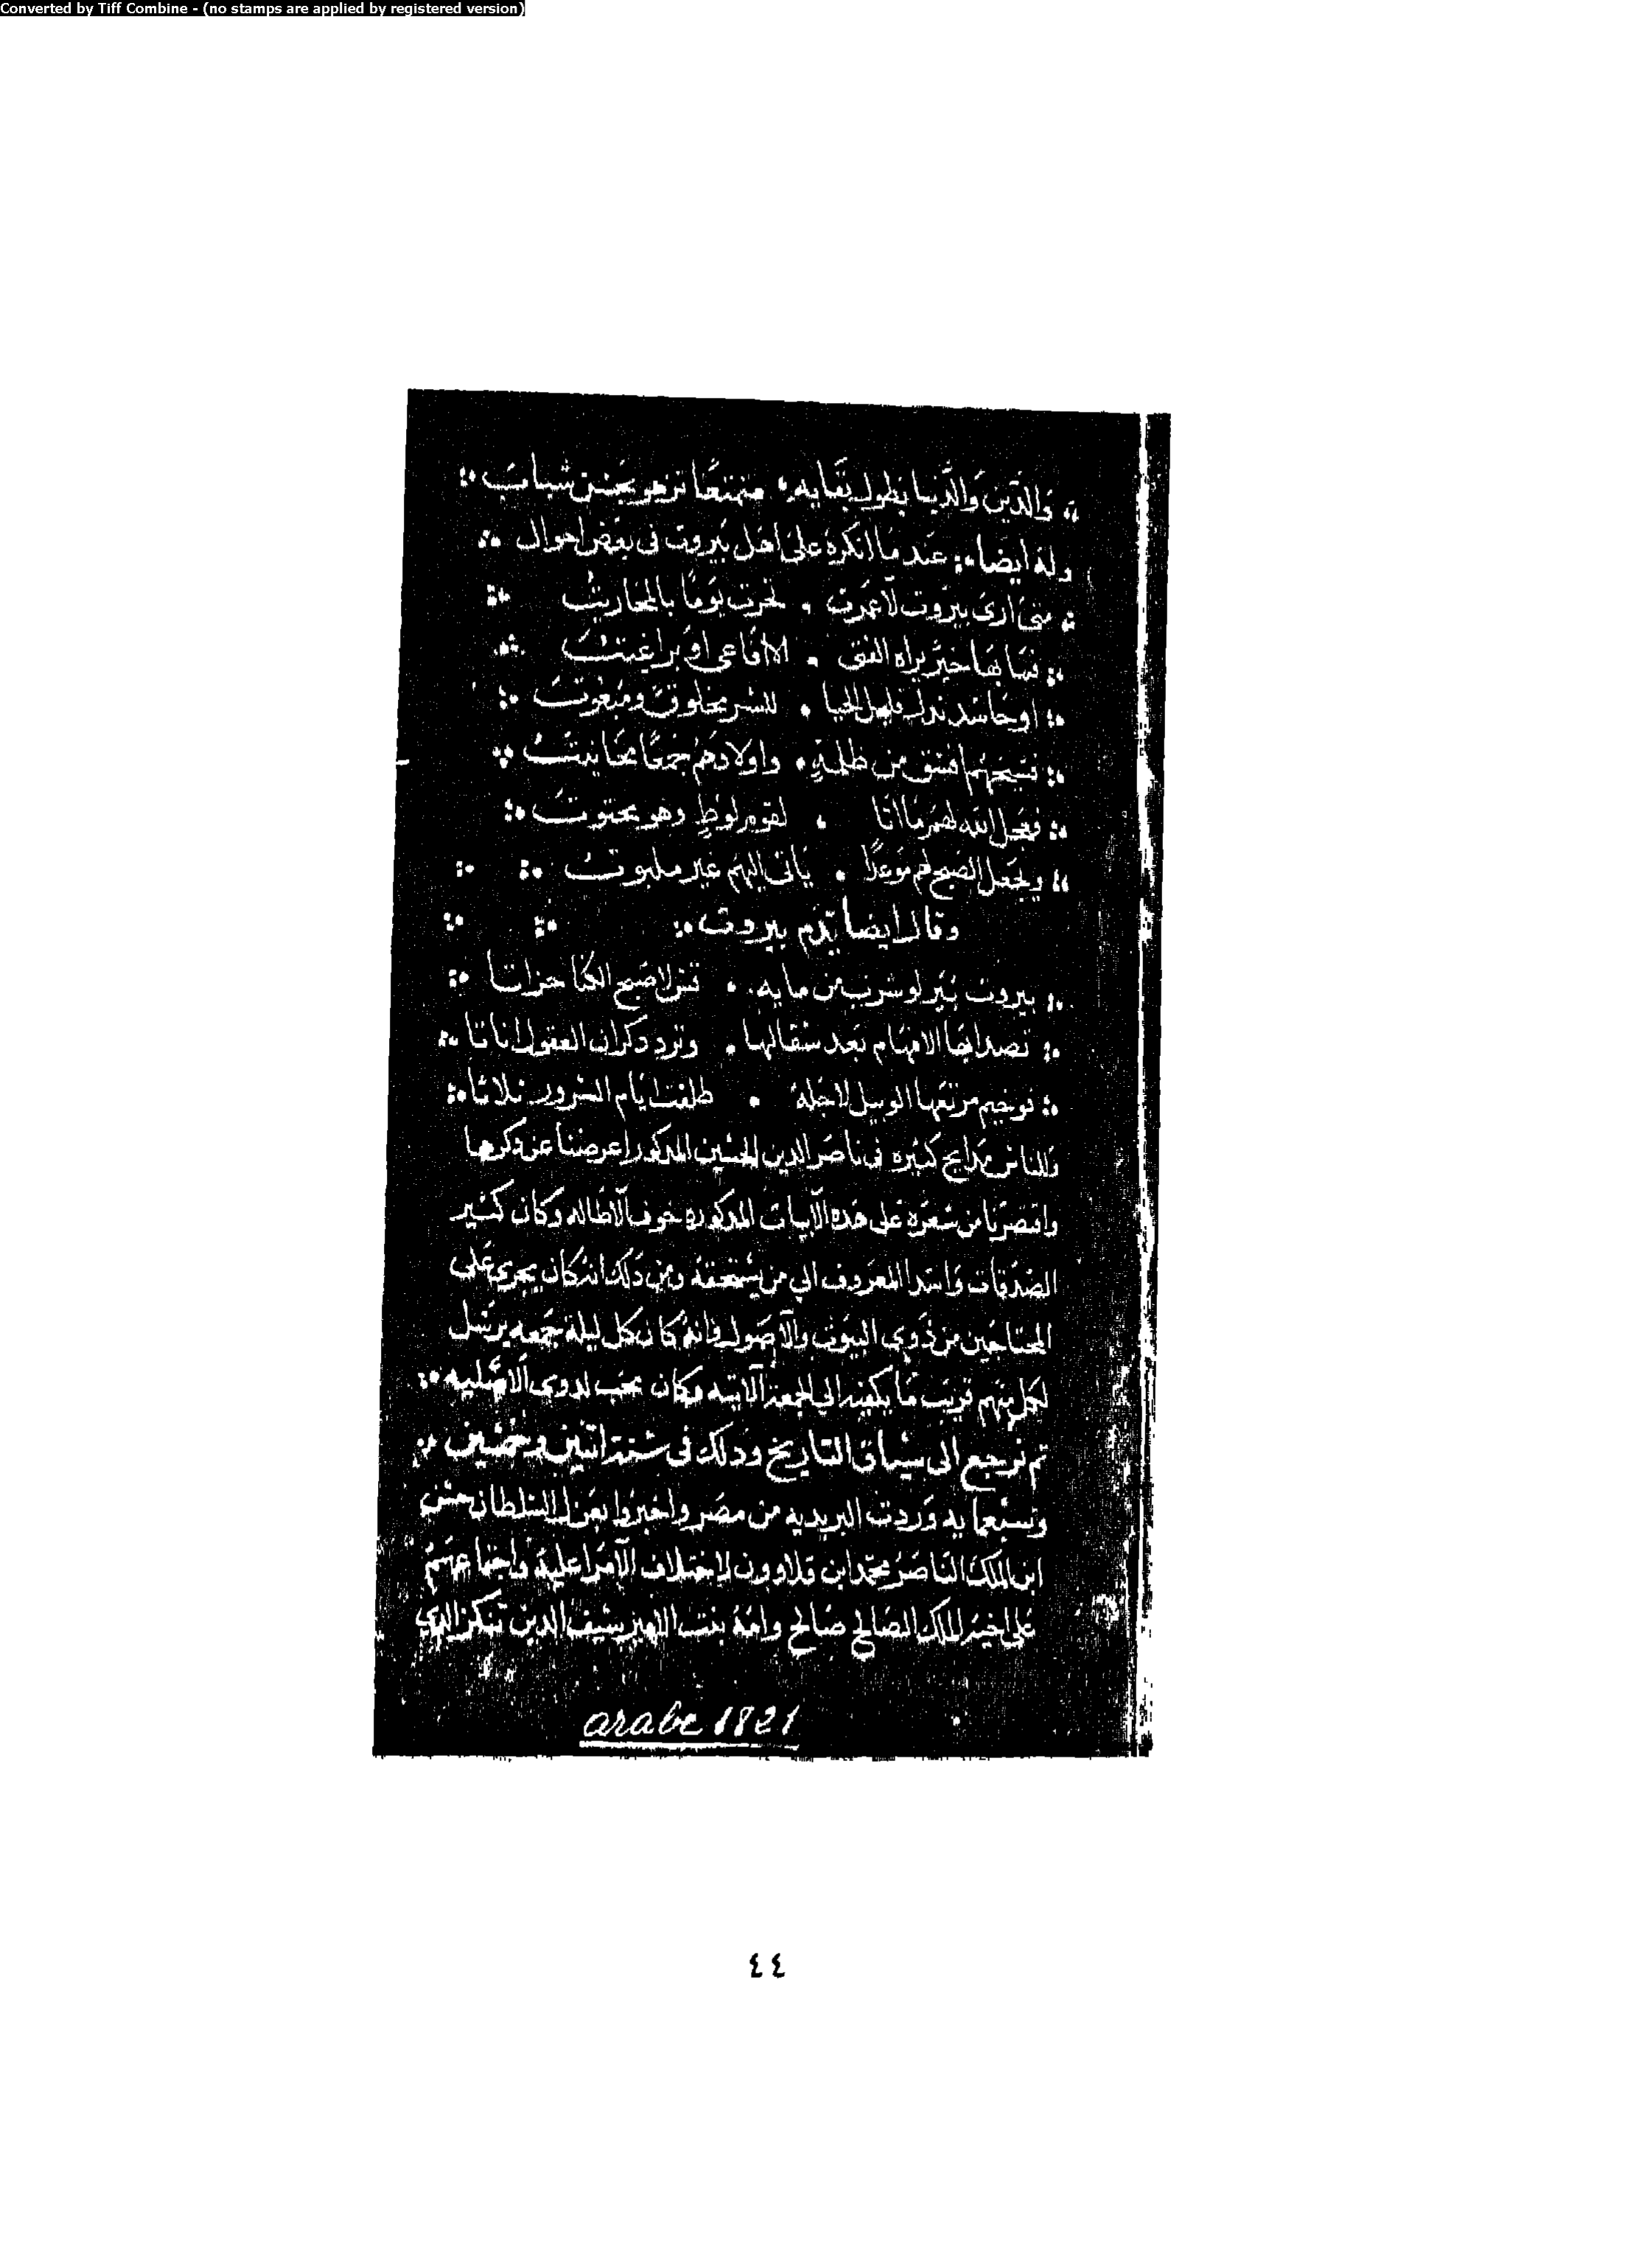 Converted by Tiff Combine - (no stamps are applied by registered version)
والدين والدنيا بطول بقايه متمتعا تزهو بحسن شباب
وله ايضا عند ما انكره على اهل بيروت فى بعض احوال
متى ارى بيروت لا عمرت تحرث يوما بالمحاريث
فما بها خير يراه الفتى الافاعى او براغيث
او حاسد قليل الحيا للشر مخلوق ومبعوث
من واولادهم جمعا مخانيث
فعجل الله لهم ما اتا لقوم لوط وهو محتوت
ويجعل الصبح لهم موعدًا ياتى اليهم غير ملبوث
وقال ايضا يذم بيروت
بيروت بير لو شرب من مايه
تصدا بها الافهام بعد صقالها وترد دكران العقول اناتا
مرتعها الوبيل لاجله طلقت ايام السرور ثلاثا
وللناس مدايح كثيره فى ناصر الدين الحسين المدكور اعرضنا عن دكرها
واقصرنا من شعره على هذه الابيات المدكوره خوف الاطاله وكان كثير
الصدقات واسدا المعروف الى من يستحقه ومن ذلك انه كان يجرى على
المحتاجين من ذوى البيوت والاصول وانه كان كل ليلة جمعه يرسل
لكل منهم قريب ما يكفيه الى الجمعة الآتيه وكان محب لدوى
ثم نرجع الى سياق التاريخ ودلك فى سنة اتنين وخمسين
وسبعمايه وردت البريديه من مصر واخبروا بعزل السلطان حسن
ابن الملك الناصر محمد ابن قلاوون لاختلاف الامرا عليه واجتماعهم
على اخيه الملك الصالح صالح وامه بنت الامير سيف الدين تنكز الدي
arabe 1821
٤٤